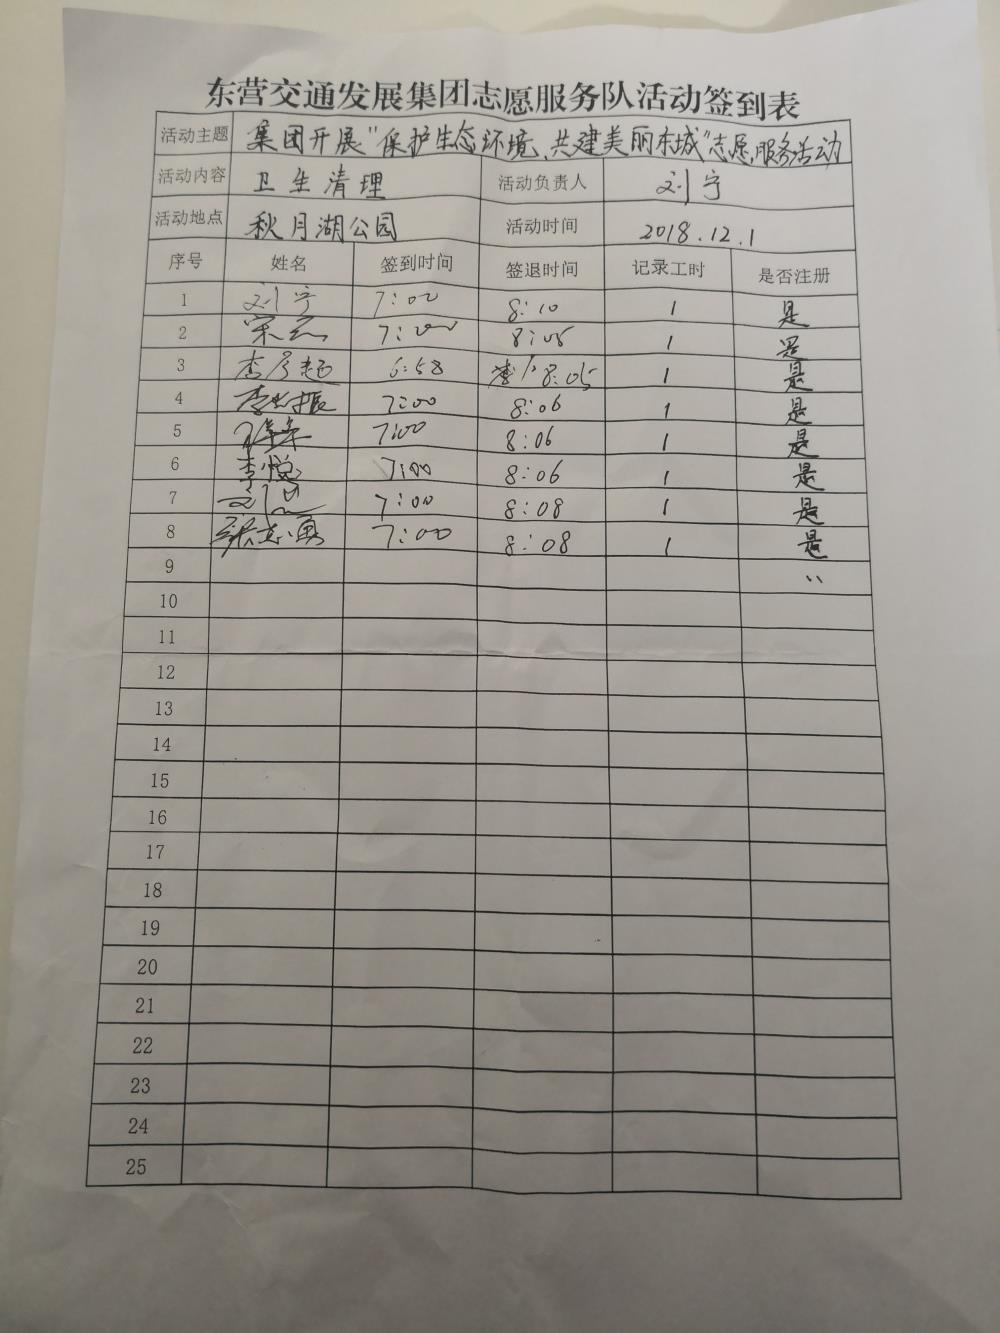 东营交通发展集团志愿服务队活动签到表
活动主题 集团开展"保护生态环境、共建美丽东城"志愿服务活动
活动内容 卫生清理 活动负责人 刘宁
活动地点 秋月湖公园 活动时间 2018.12.1
序号 姓名 签到时间 签退时间 记录工时 是否注册
1 刘宁 7:00 8:10 1 是
2 7:00 8:05 1 是
3 李彦超 6:58 8:05 1 是
4 7:00 8:06 1 是
5 7:00 8:06 1 是
6 李悦 7:00 8:06 1 是
7 7:00 8:08 1 是
8 张志勇 7:00 8:08 1 是
9
10
11
12
13
14
15
16
17
18
19
20
21
22
23
24
25